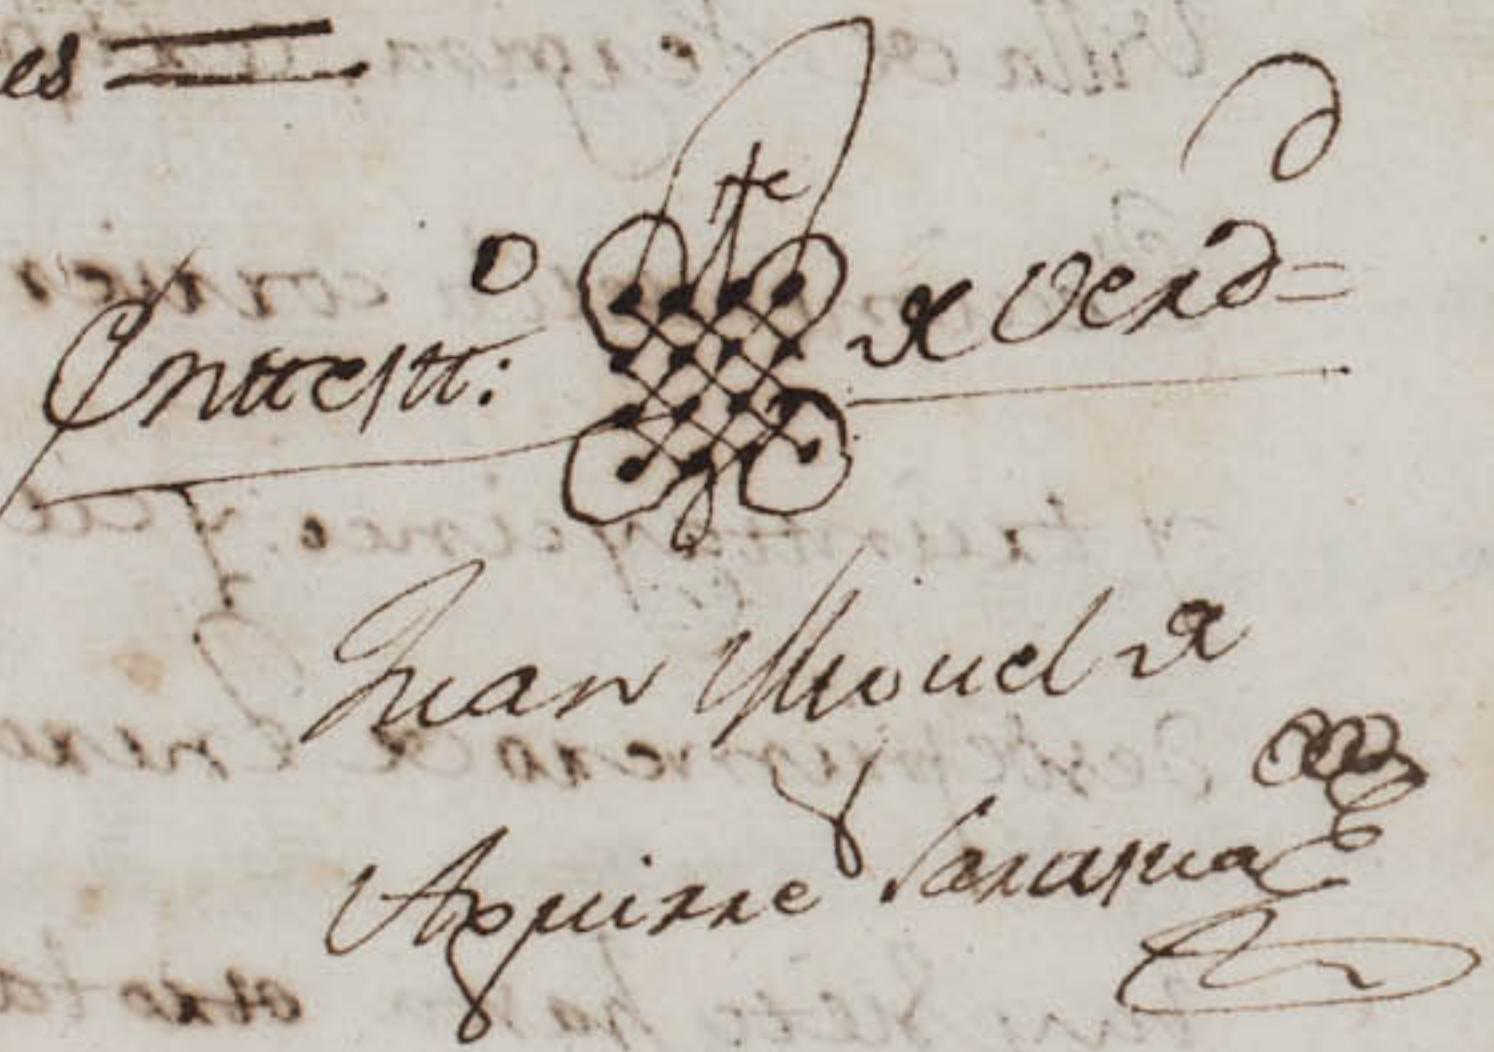 es
Enttestt:o de Verd=
Juan Miguel de
Aguirre Sarasua